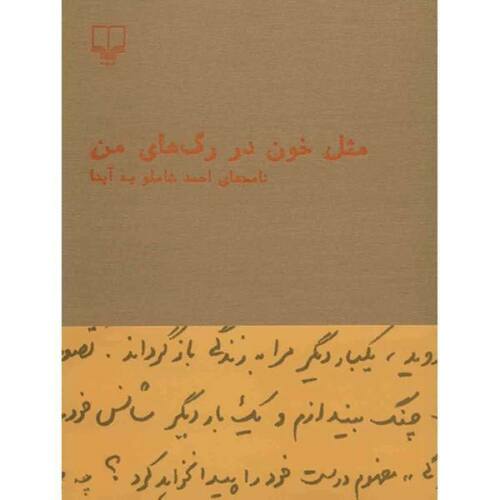 مثل خون در رگ‌های من
نامه‌های احمد شاملو به آیدا
روید، یکبار دیگر مرا به زندگی باز گرداند. تصو
چنگ بیندازم و یک بار دیگر شانس خود
گی» مفهوم درست خود را پیدا نخواهد کرد؟